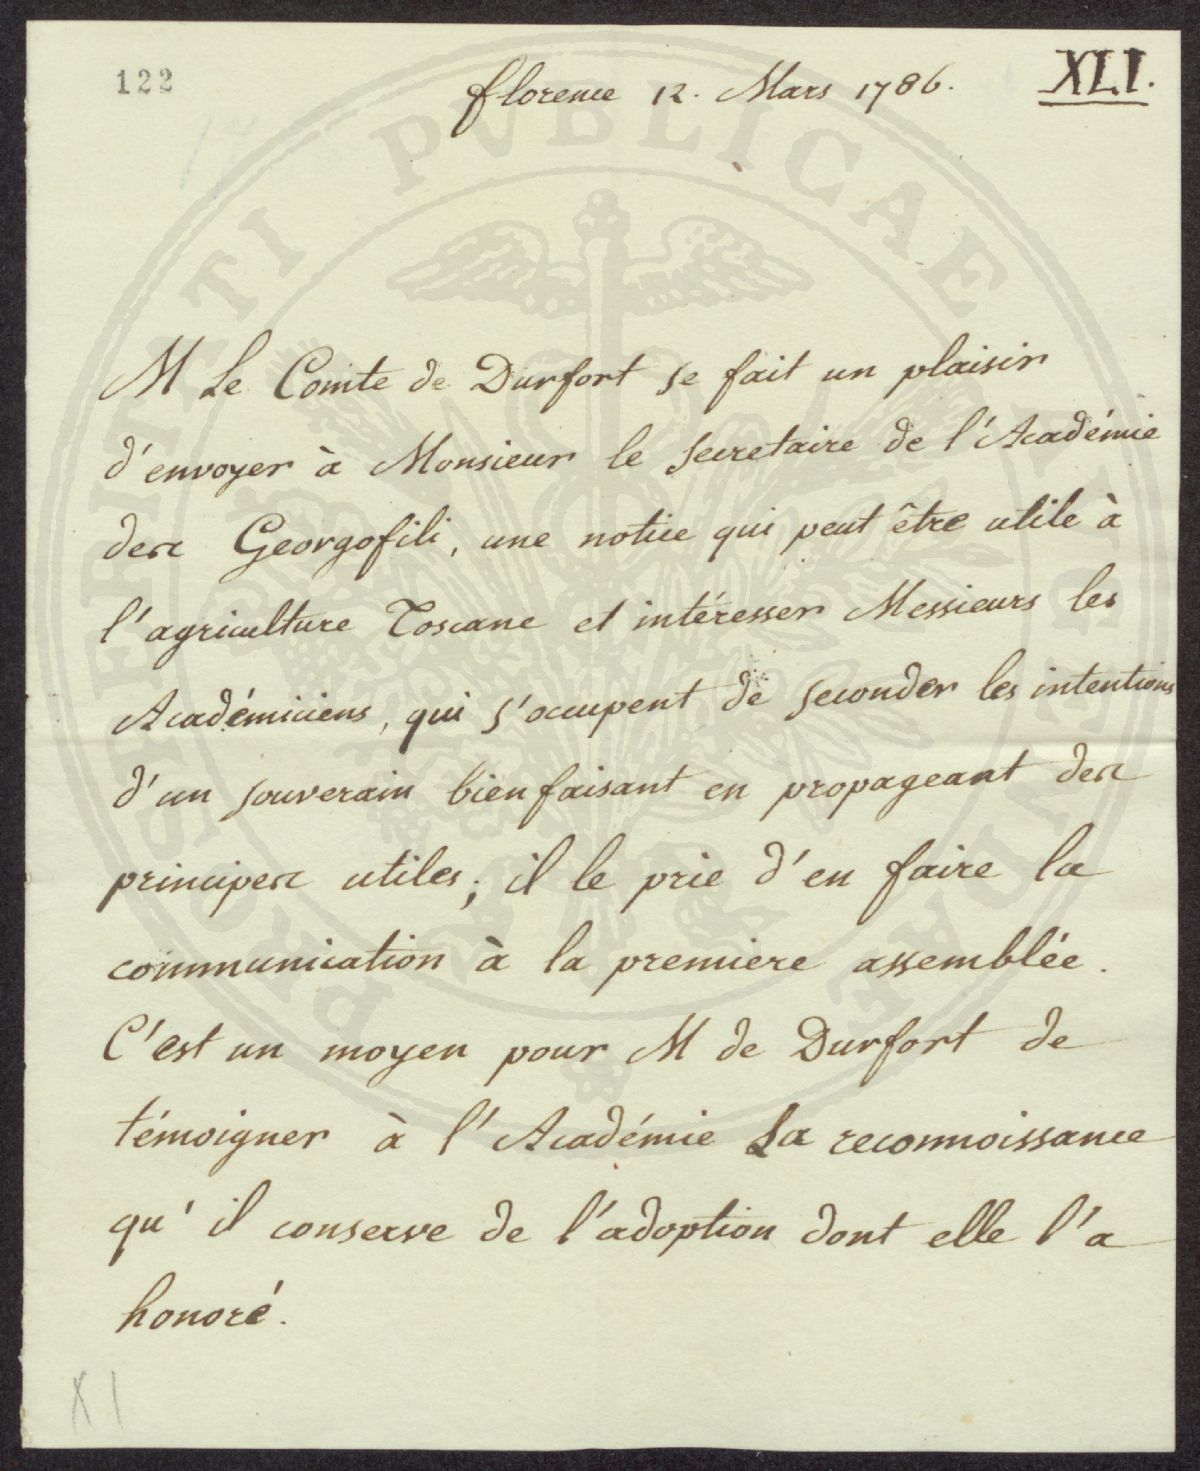 122
florence 12. Mars 1786.
XLI.
M Le Comte de Durfort se fait un plaisir
d'envoyer à Monsieur le secretaire de l'Académie
des Georgofili, une notice qui peut être utile à
l'agriculture Toscane et intéresser Messieurs les
Académiciens, qui s'occupent de seconder les intentions
d'un souverain bienfaisant en propageant des
principes utiles; il le prie d'en faire la
communication à la premiere assemblée.
C'est un moyen pour M de Durfort de
témoigner à l'Académie La reconnoissance
qu'il conserve de l'adoption dont elle l'a
honoré.
XI
PROSPERITATI PVBLICAE AVGENDAE